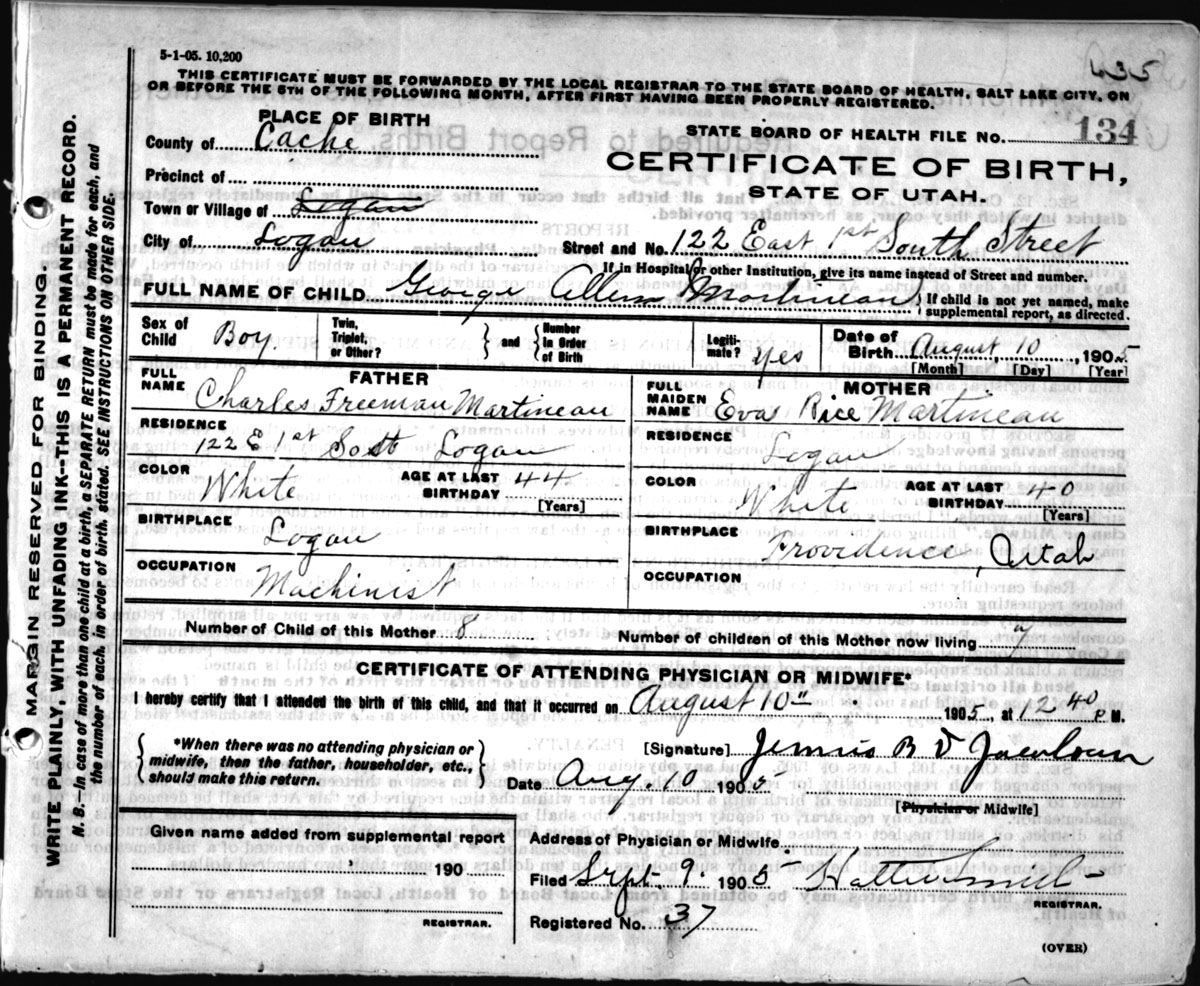 5-1-05. 10,200
THIS CERTIFICATE MUST BE FORWARDED BY THE LOCAL REGISTRAR TO THE STATE BOARD OF HEALTH, SALT LAKE CITY, ON
OR BEFORE THE 5TH OF THE FOLLOWING MONTH, AFTER FIRST HAVING BEEN PROPERLY REGISTERED.
PLACE OF BIRTH
County of Cache
STATE BOARD OF HEALTH FILE No. 134
CERTIFICATE OF BIRTH,
STATE OF UTAH.
Precinct of
Town or Village of Logan
City of Logan
Street and No. 122 East 1st South Street
If in Hospital or other Institution, give its name instead of Street and number.
FULL NAME OF CHILD George Allen Martineau } If child is not yet named, make supplemental report, as directed.
Sex of Child Boy. Twin, Triplet, or Other? } and { Number in Order of Birth Legiti-mate? yes Date of Birth August, 10, 1905
[Month] [Day] [Year]
FATHER
FULL NAME Charles Freeman Martineau
RESIDENCE 122 E 1st So St Logan
COLOR White AGE AT LAST BIRTHDAY 44
[Years]
BIRTHPLACE Logan
OCCUPATION Machinist
MOTHER
FULL MAIDEN NAME Eva Rice Martineau
RESIDENCE Logan
COLOR White AGE AT LAST BIRTHDAY 40
[Years]
BIRTHPLACE Providence, Utah
OCCUPATION
Number of Child of this Mother 8 Number of children of this Mother now living 7
CERTIFICATE OF ATTENDING PHYSICIAN OR MIDWIFE*
I hereby certify that I attended the birth of this child, and that it occurred on August 10" 1905, at 12 40 P M.
{ *When there was no attending physician or
midwife, then the father, householder, etc.,
should make this return. }
[Signature] B D Jacobson
Date Aug. 10 1905
[Physician or Midwife]
Given name added from supplemental report
190
REGISTRAR.
Address of Physician or Midwife
Filed Sept. 9. 1905 Smith
REGISTRAR.
Registered No. 37
(OVER)
MARGIN RESERVED FOR BINDING.
WRITE PLAINLY, WITH UNFADING INK--THIS IS A PERMANENT RECORD.
N. B.--In case of more than one child at a birth, a SEPARATE RETURN must be made for each, and
the number of each, in order of birth, stated. SEE INSTRUCTIONS ON OTHER SIDE.